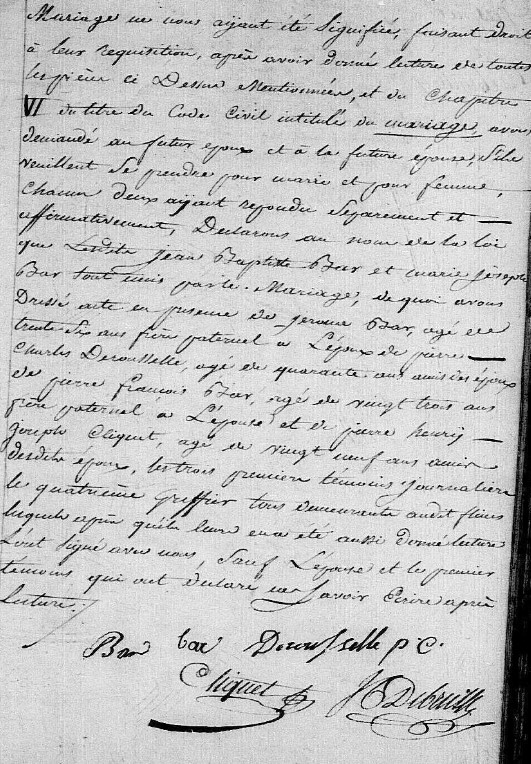 Mariage ne nous ayant été signifiée, faisant droit
à leur requisition, après avoir donné lecture de toutes
les pièces ci Dessus Mentionnées, et du chapitre
VI du titre du Code Civil intitulé du mariage, avons
demandé au futur époux et à la future épouse, s'ils
veuillent se prendre pour marie et pour femme,
chacun deux ayant repondu separement et
affirmativement, Declarons au nom de la loi
que Jean Baptiste Bar et marie joseph
Bar sont unis par le Mariage, de quoi avons
Dressé acte en presence de jerome Bar, agé de
trente six ans frère paternel à L'époux de pierre
Charles Derousselle, agé de quarante ans amis des époux
de pierre françois Bar, agé de vingt trois ans
frère paternel à L'épouse et de pierre henry
joseph Cliquet, agé de vingt neuf ans amis
desdits époux, les trois premiers témoins journaliers
le quatrième greffier tous demeurants audit flines
lesquels après qu'il leur en a été aussi donné lecture
ont signé avec nous, Sauf L'épouse et le premier
temoins, qui ont declaré ne savoir Ecrire après
Lecture.
Bar bar Derousselle p c.
Cliquet